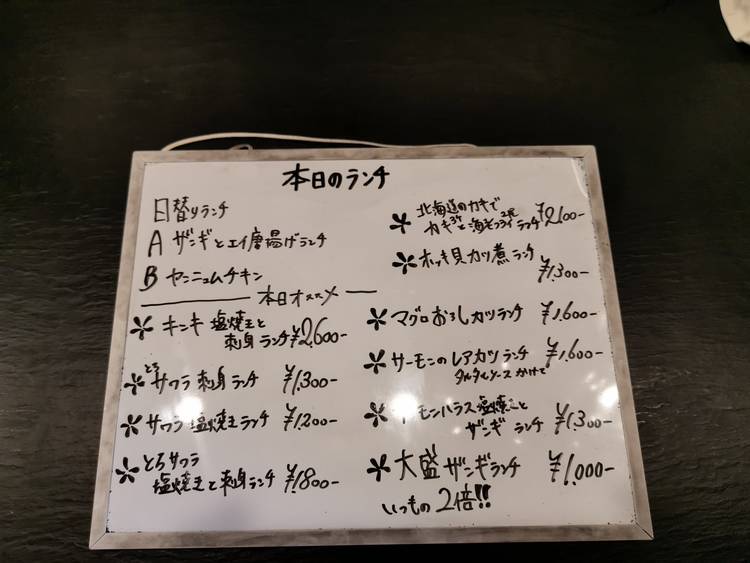 本日のランチ
日替りランチ
A ザンギとエイ唐揚げランチ
B ヤンニュムチキン
本日オススメ
* キンキ 塩焼きと
刺身ランチ ¥2,600-
* とろ
サワラ 刺身ランチ ¥1,300-
* サワラ 塩焼きランチ ¥1,200-
* とろサワラ
塩焼きと刺身ランチ ¥1,800-
* 北海道のカキで
カキ3ケと海老フライ2尾ランチ ¥2,100-
* ホッキ貝カツ煮ランチ
¥1,300-
* マグロおろしカツランチ ¥1,600-
* サーモンのレアカツランチ ¥1,600-
タルタルソースかけて
* ーモンハラス塩焼きと
ザンギランチ ¥1,300-
* 大盛ザンギランチ ¥1,000-
いつもの2倍!!